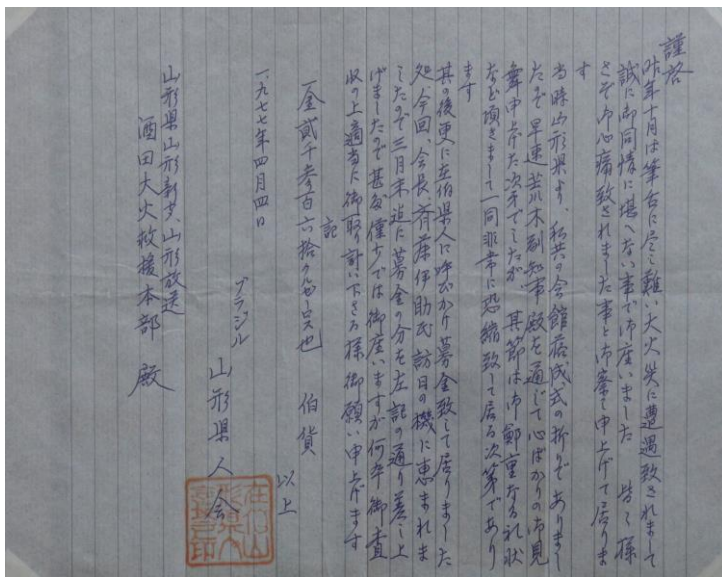 謹啓
昨年十月は筆舌に尽し難い大火災に遭遇致されまして
誠に御同情に堪へない事で御座いました 皆々様
さぞ御心痛致されました事と御察し申上げて居りま
す
当時山形県より、私共の会館落成式の折りでありまし
たので早速荒木副知事殿を通じて心ばかりの御見
舞申上げた次第でしたが、其節は御鄭重なる礼状
など頂きまして一同非常に恐縮致して居る次第であり
ます
其の後更に在伯県人に呼びかけ募金致して居りました
処、今回、会長斉藤伊助氏訪日の機に恵まれま
したので三月末迄に募金の分を左記の通り差し上
げましたので甚だ僅少では御座いますが何卒御査
収の上適当に御取り計い下さる様御願い申上げます
記
一金貳千参百六拾クルゼーロス也 伯貨
以上
一九七七年四月四日
ブラジル
山形県人会
山形県山形新聞、山形放送
酒田大火救援本部 殿